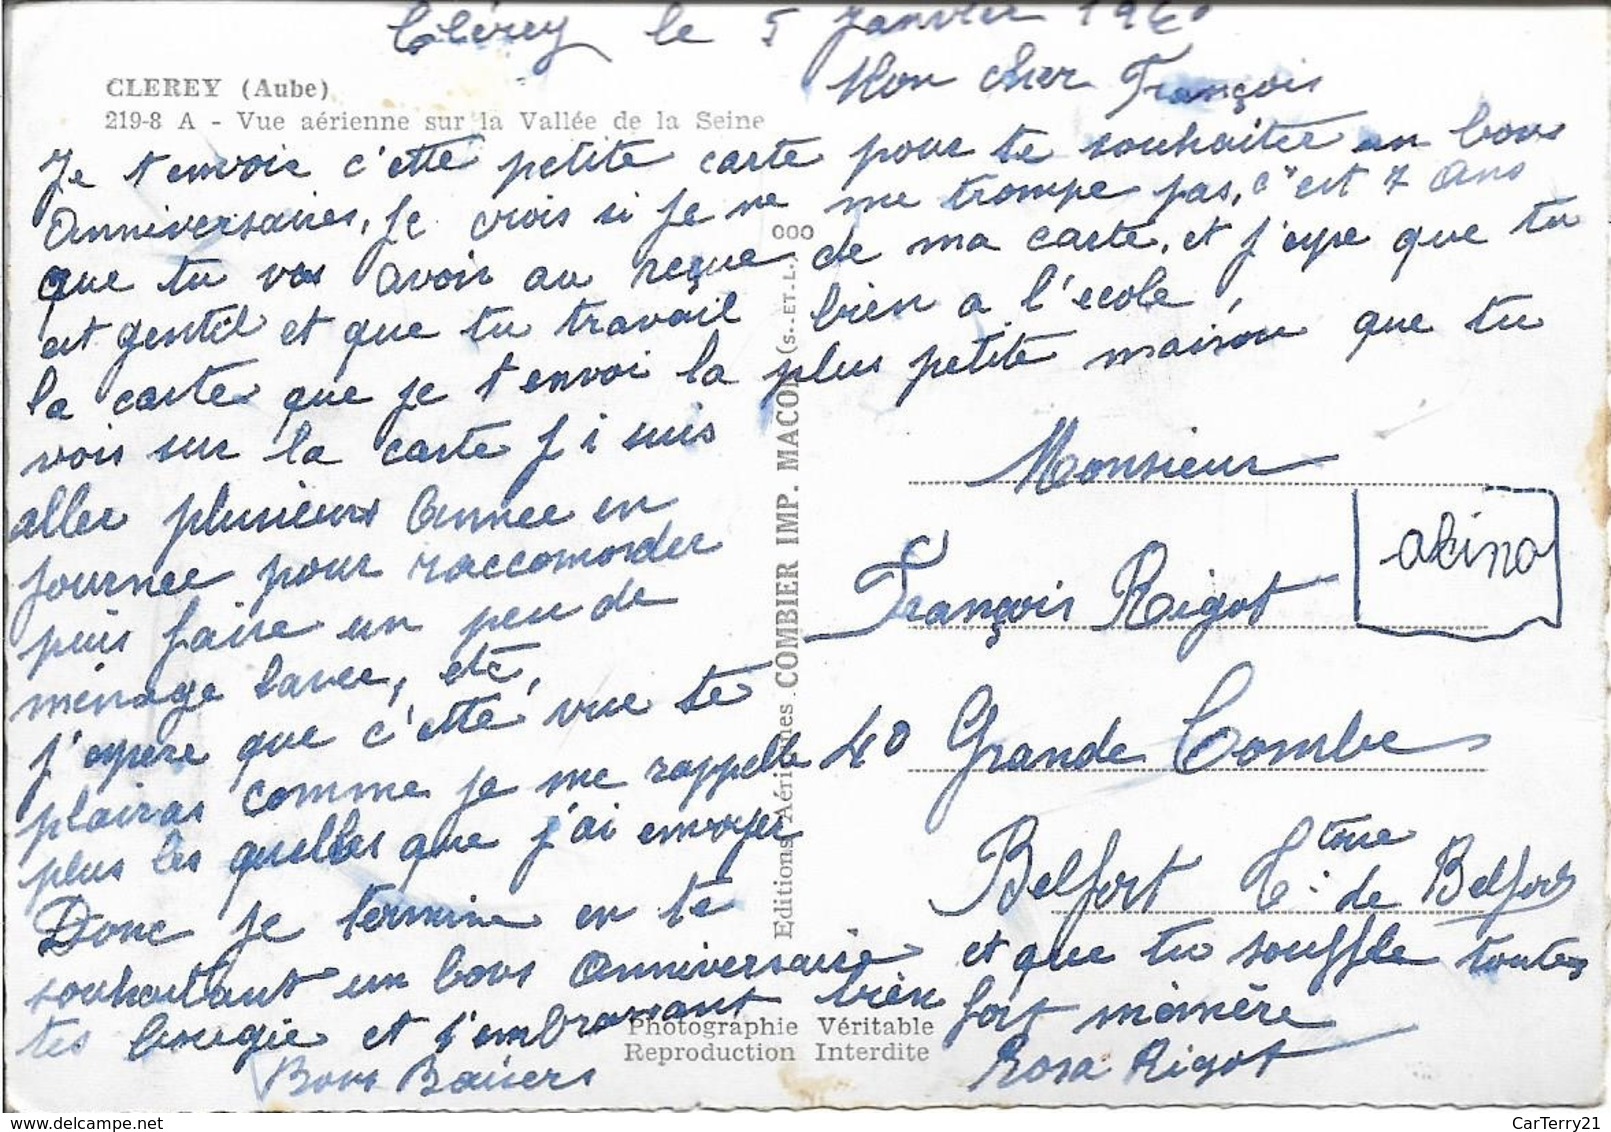 Clérey le 5 Janvier 196
CLEREY (Aube)
219-8 A - Vue aérienne sur la Vallée de la Seine
Mon cher François
Je t'envoie c'ette petite carte pour te souhaiter un bons
Anniversaires, Je crois si je ne me trompe pas, c'est 7 Ans
que tu vas avoir au reçue de ma carte, et j'espe que tu
est gentil et que tu travail bien a l'ecole,
la carte que je t'envoi la plus petite maison que tu
vois sur la carte J i suis
aller plusieurs Année en
journee pour raccomoder
puis faire un peu de
ménage laver, etc,
j'espere que c'ette vue te
plairas comme je me rappelle
plus les quelles que j'ai envoyer
Donc je termine en te
souhaitant un bons Anniversaire et que tu souffle toutes
tes bougie et t'embrassant bien fort mémère
Bons Baisers
Rosa Rigot
Monsieur
François Rigot
40 Grande Combe
Belfort Tme de Belfort
akino
Editions Aériennes COMBIER IMP. MACON (S.-ET-L.) 000
Photographie Véritable
Reproduction Interdite
CarTerry21